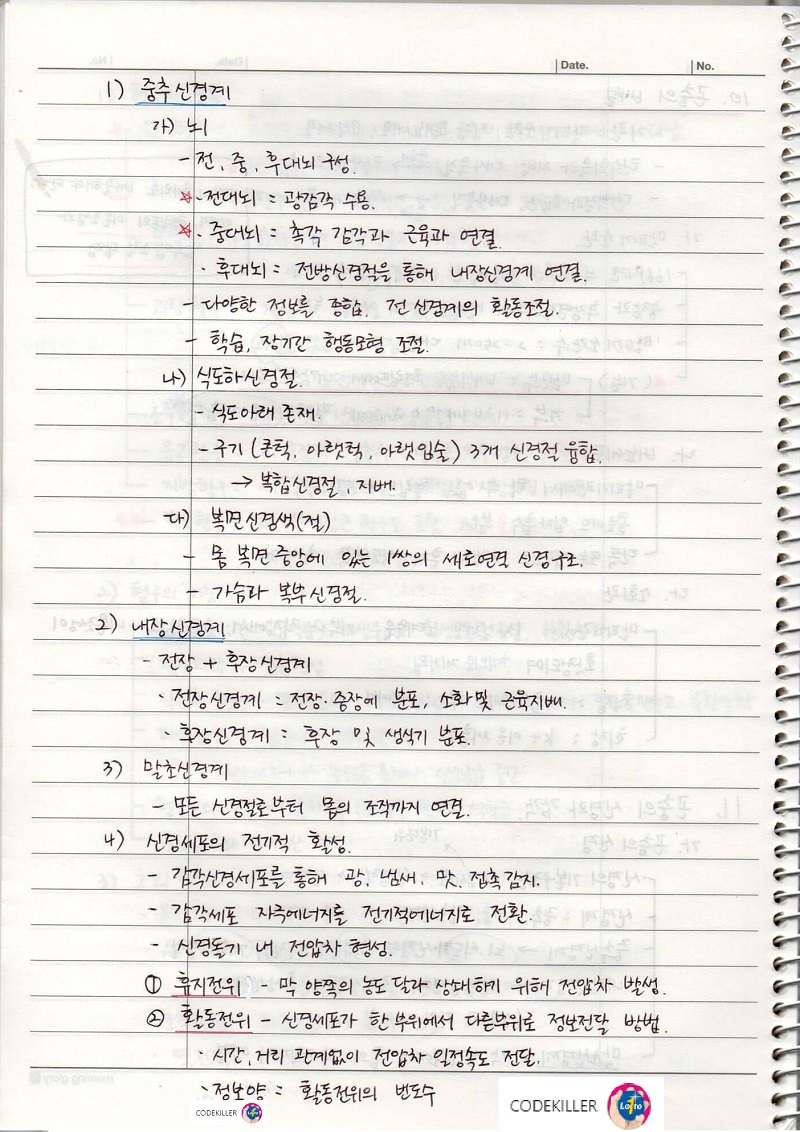 Date.
No.
1) 중추신경계
가) 뇌
- 전, 중, 후대뇌 구성.
☆· 전대뇌 = 광감각 수용.
☆· 중대뇌 = 촉각 감각과 근육과 연결.
· 후대뇌 = 전방신경절을 통해 내장신경계 연결.
- 다양한 정보를 종합, 전 신경계의 활동조절.
- 학습, 장기간 행동모형 조절.
나) 식도하신경절.
- 식도아래 존재.
- 구기 (큰턱, 아랫턱, 아랫입술) 3개 신경절 융합.
→ 복합신경절, 지배.
다) 복면신경색(절)
- 몸 복면 중앙에 있는 1쌍의 세로연결 신경구조.
- 가슴과 복부신경절.
2) 내장신경계
- 전장 + 후장신경계
· 전장신경계 = 전장·중장에 분포, 소화 및 근육지배.
· 후장신경계 = 후장 및 생식기 분포.
3) 말초신경계
- 모든 신경절로부터 몸의 조직까지 연결.
4) 신경세포의 전기적 활성.
- 감각신경세포를 통해 광, 냄새, 맛, 접촉감지.
- 감각세포 자극에너지를 전기적에너지로 전환.
- 신경돌기 내 전압차 형성.
① 휴지전위 - 막 양쪽의 농도 달라 상쇄하기 위해 전압차 발생.
② 활동전위 - 신경세포가 한 부위에서 다른부위로 정보전달 방법.
· 시간, 거리 관계없이 전압차 일정속도 전달.
· 정보양 = 활동전위의 빈도수
CODEKILLER
CODEKILLER